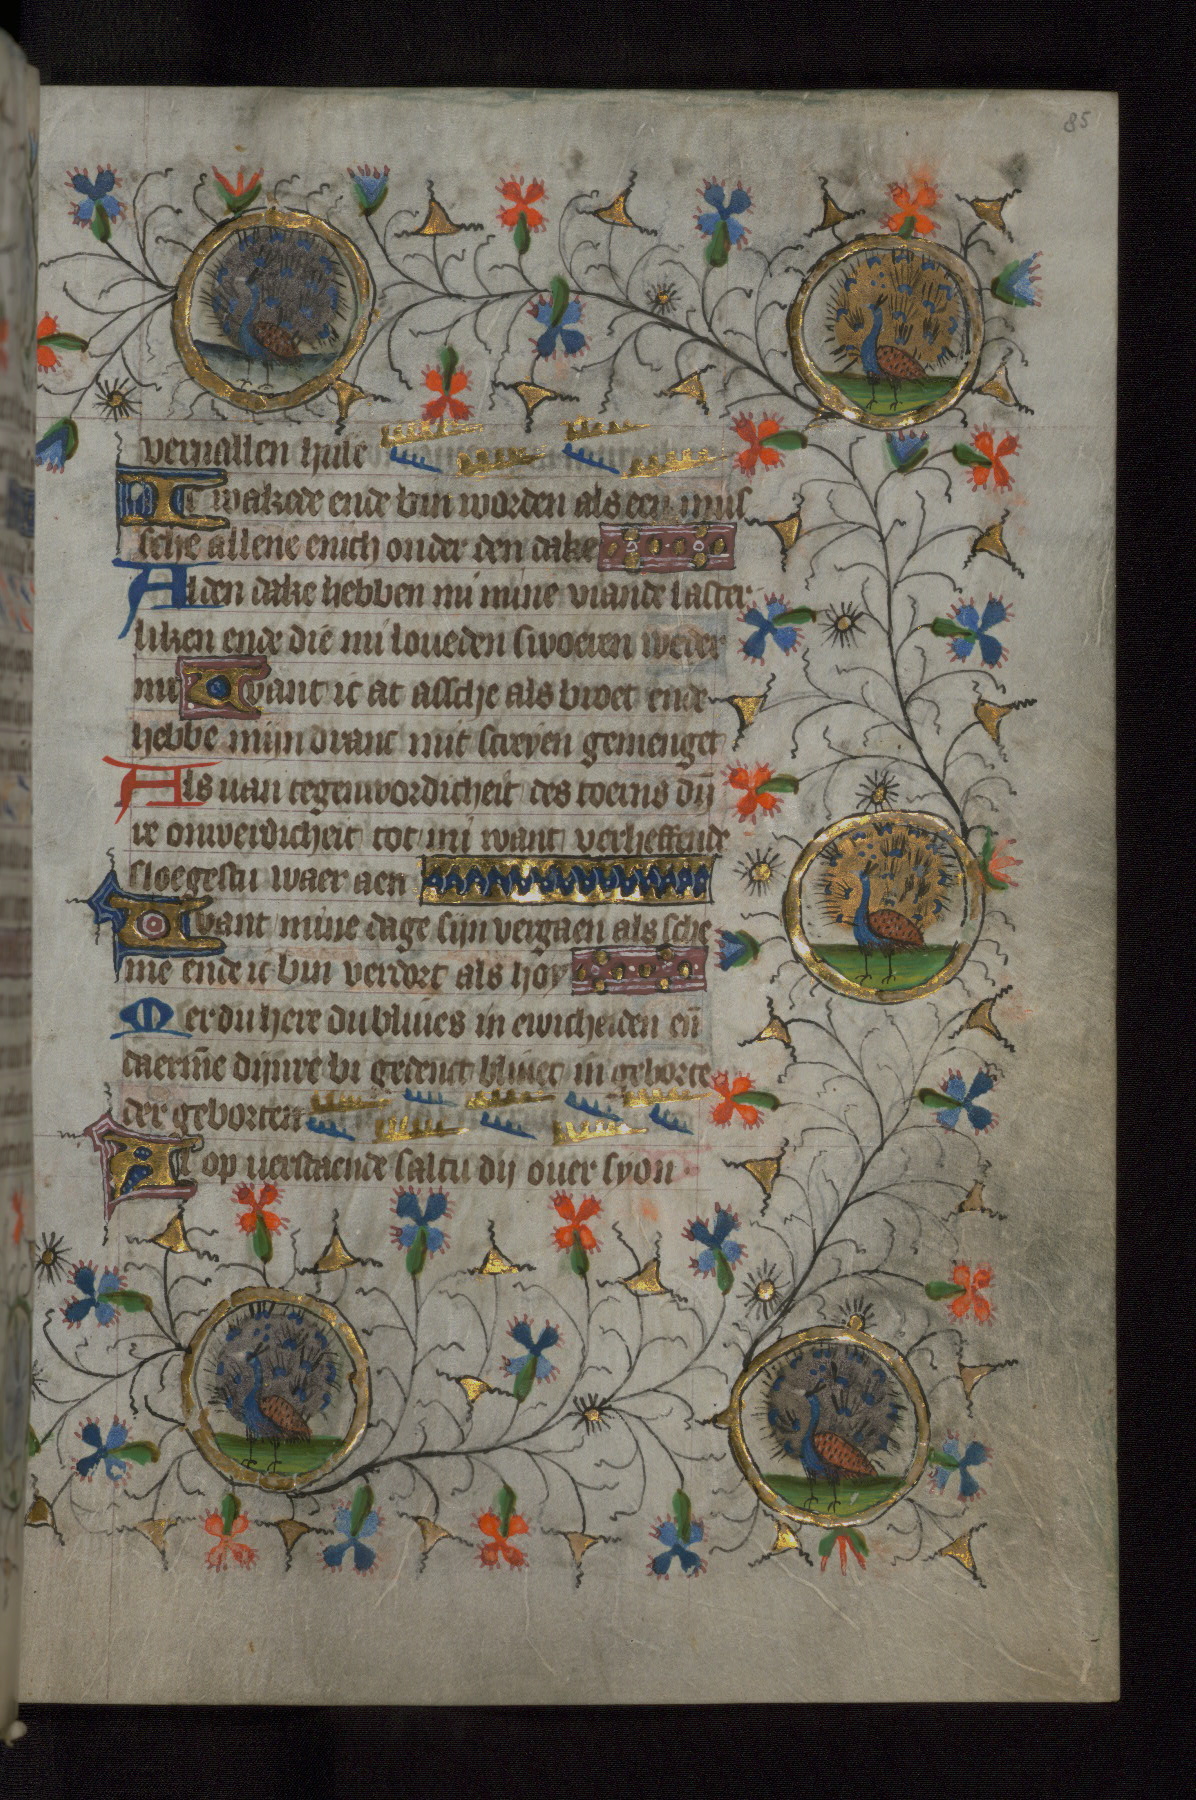 85
vervallen huse
Ic wakede ende bin worden als een mus
sche allene enich onder den dake
Alden dake hebben mi mine viande laster
liken ende die mi loueden swoeren weder
mi Want ic at assche als broet ende
hebbe mijn dranc mit screyen gemenget
Als van tegenwordicheit des toerns dij
re onwerdicheit tot mi want verheffende
sloegestu waer aen
Want mine dage sijn vergaen als sche
me ende ic bin verdort als hoy
Mer du here du bliues in ewicheiden en̄
daerm̄e dijnre bi gedenct bliuet in geborte
der geborten
Du op verstaende saltu dij ouer syon